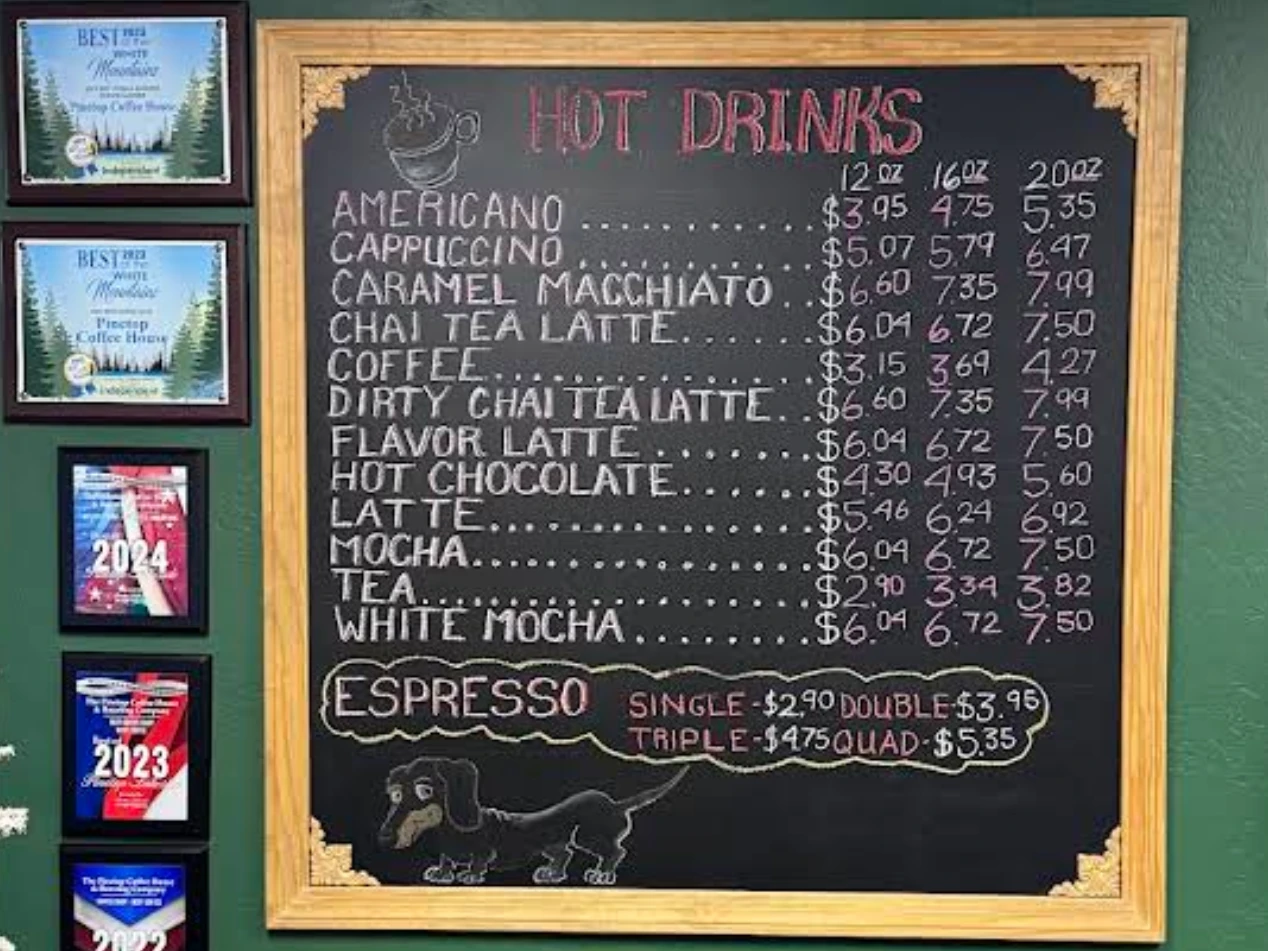 BEST 2023
OF THE
WHITE
Mountains
Pinetop Coffee House
Independent
BEST 2023
OF THE
WHITE
Mountains
Pinetop
Coffee House
Independent
2024
The Pinetop Coffee House
& Roasting Company
2023
The Pinetop Coffee House
& Roasting Company
2022
HOT DRINKS
12 OZ 16 OZ 20 OZ
AMERICANO ............ $3.95 4.75 5.35
CAPPUCCINO ............ $5.07 5.79 6.47
CARAMEL MACCHIATO .. $6.60 7.35 7.99
CHAI TEA LATTE....... $6.04 6.72 7.50
COFFEE................. $3.15 3.69 4.27
DIRTY CHAI TEA LATTE.. $6.60 7.35 7.99
FLAVOR LATTE ........ $6.04 6.72 7.50
HOT CHOCOLATE....... $4.30 4.93 5.60
LATTE................. $5.46 6.24 6.92
MOCHA................. $6.04 6.72 7.50
TEA.................... $2.90 3.34 3.82
WHITE MOCHA ......... $6.04 6.72 7.50
ESPRESSO SINGLE - $2.90 DOUBLE - $3.95
TRIPLE - $4.75 QUAD - $5.35